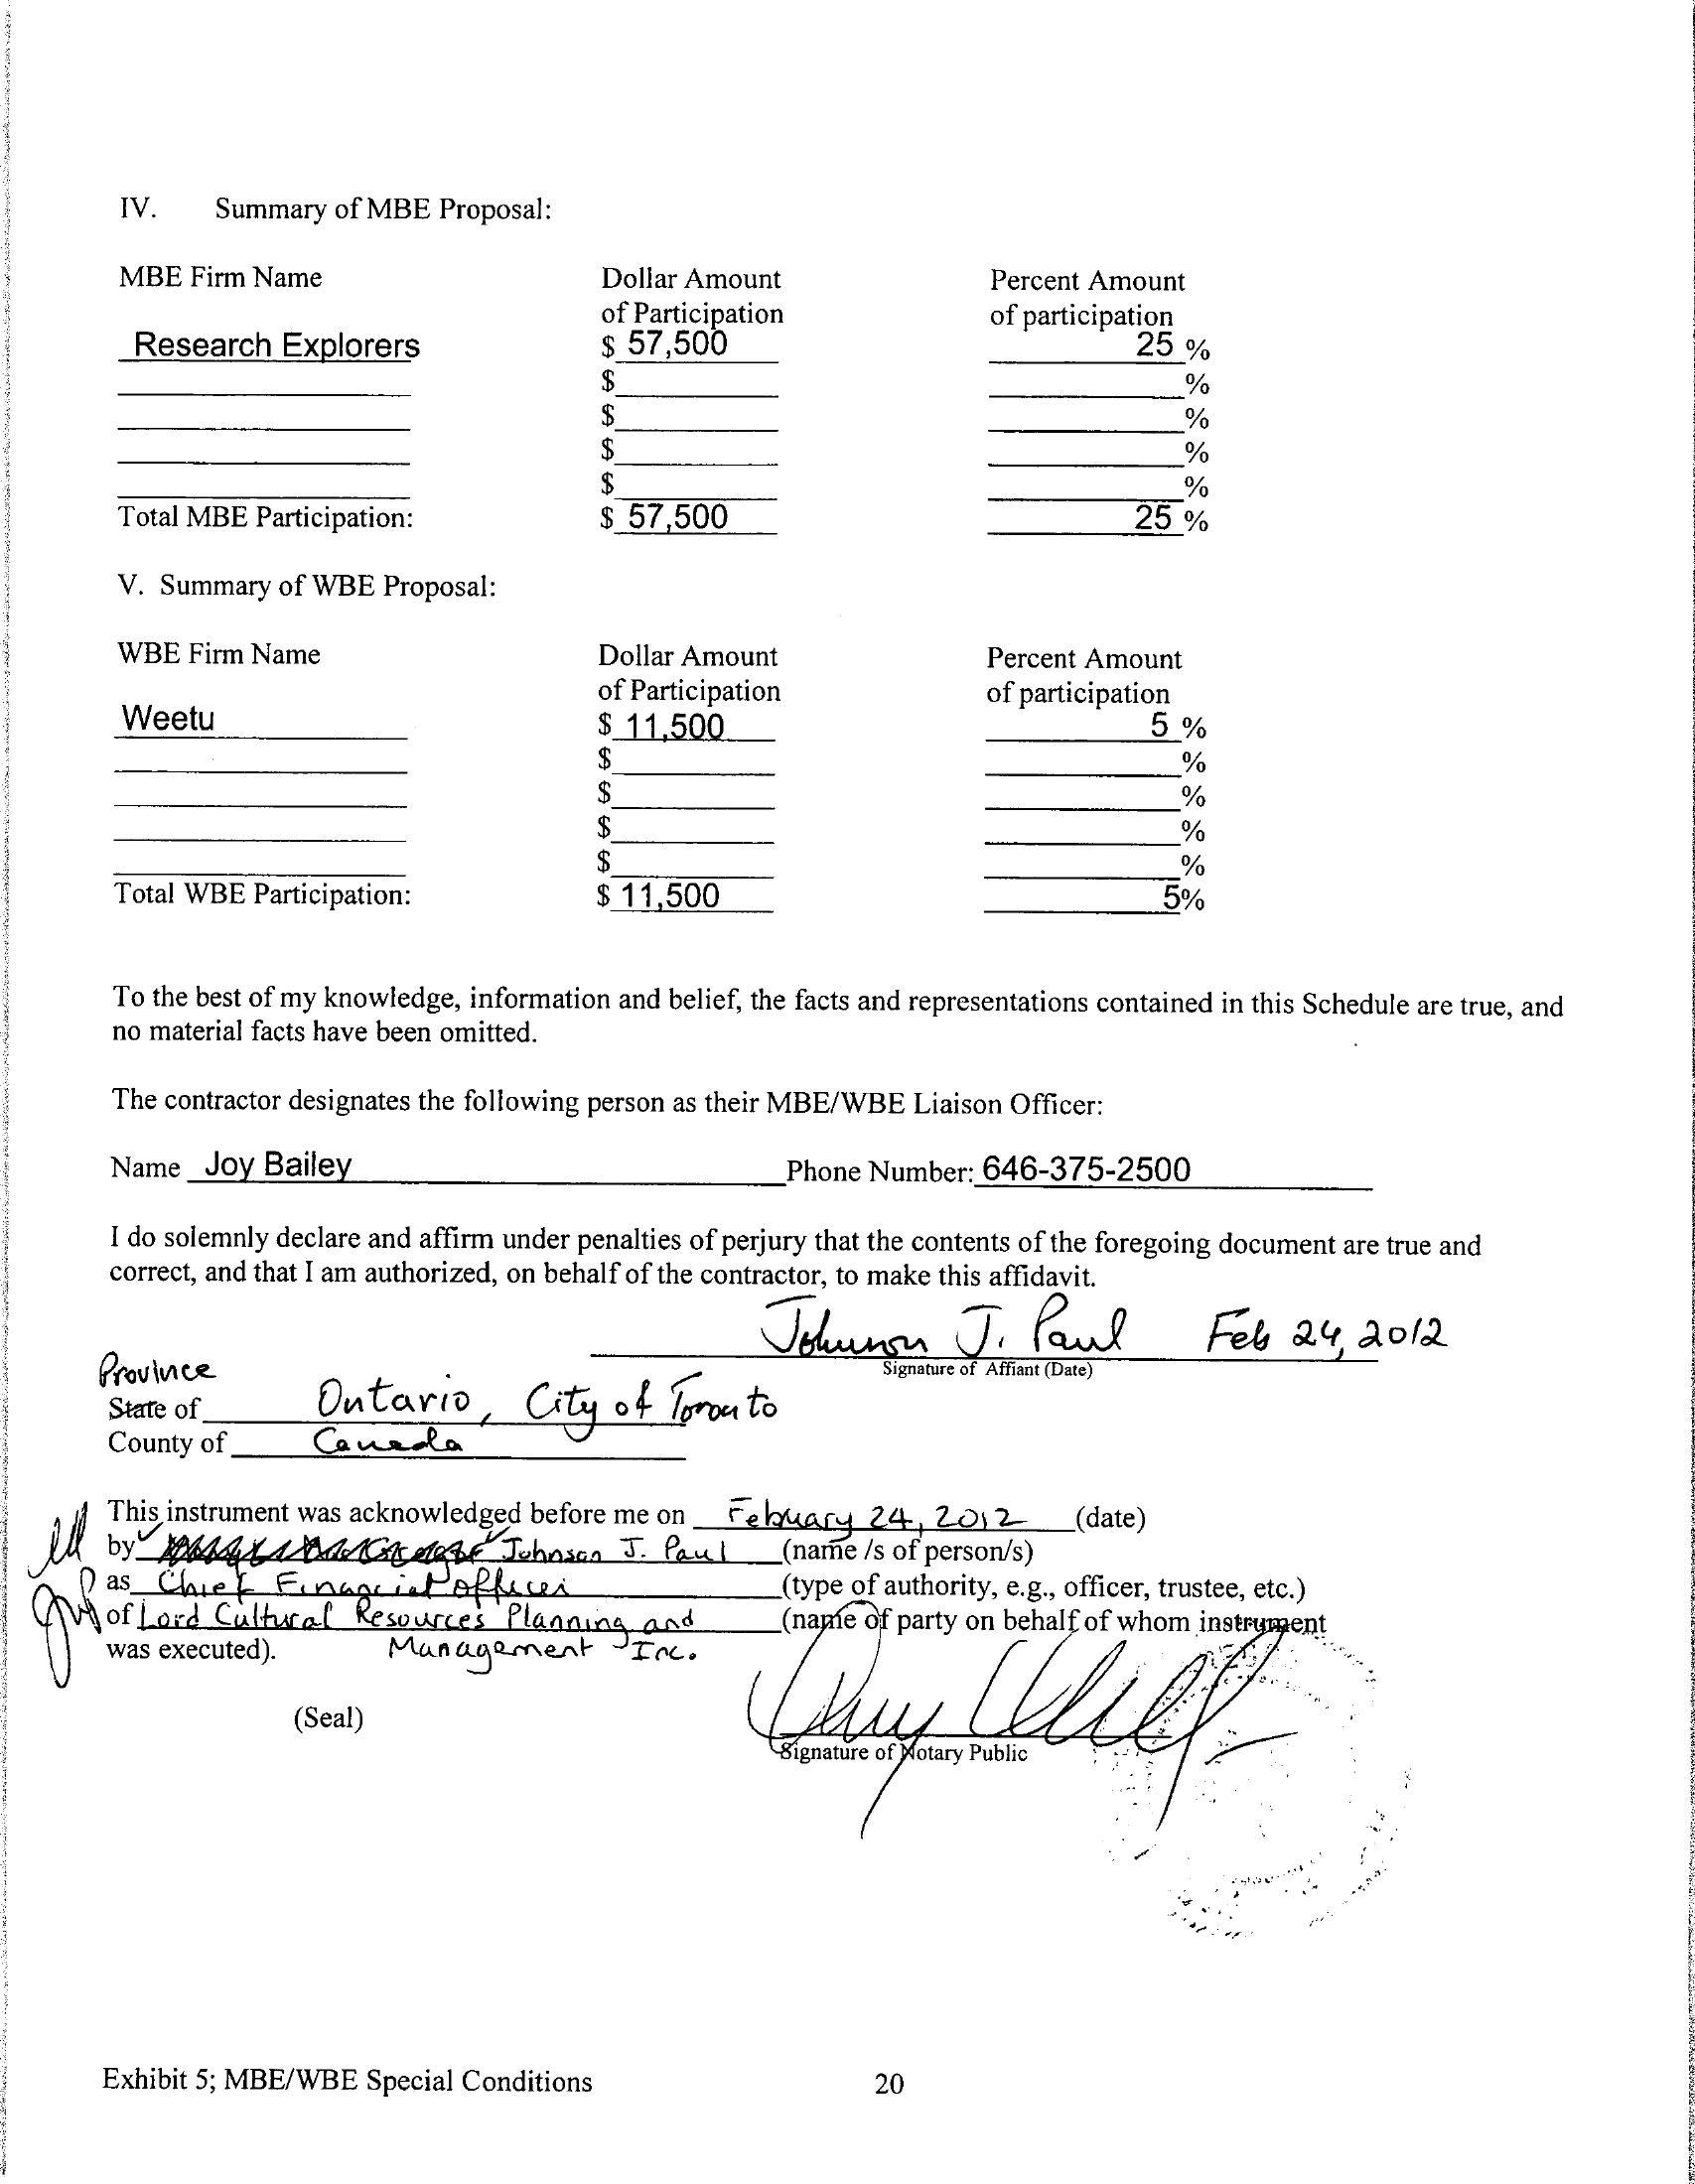 IV. Summary of MBE Proposal:
MBE Firm Name Dollar Amount of Participation Percent Amount of participation
Research Explorers $ 57,500 25 %
$ %
$ %
$ %
$ %
Total MBE Participation: $ 57,500 25 %
V. Summary of WBE Proposal:
WBE Firm Name Dollar Amount of Participation Percent Amount of participation
Weetu $ 11,500 5 %
$ %
$ %
$ %
$ %
Total WBE Participation: $ 11,500 5%
To the best of my knowledge, information and belief, the facts and representations contained in this Schedule are true, and
no material facts have been omitted.
The contractor designates the following person as their MBE/WBE Liaison Officer:
Name Joy Bailey Phone Number: 646-375-2500
I do solemnly declare and affirm under penalties of perjury that the contents of the foregoing document are true and
correct, and that I am authorized, on behalf of the contractor, to make this affidavit.
Johnson J. Paul Feb 24, 2012
Signature of Affiant (Date)
Province
State of Ontario, City of Toronto
County of Canada
This instrument was acknowledged before me on February 24, 2012 (date)
by Johnson J. Paul (name /s of person/s)
as Chief Financial Officer (type of authority, e.g., officer, trustee, etc.)
of Lord Cultural Resources Planning and (name of party on behalf of whom instrument
was executed). Management Inc.
(Seal)
Signature of Notary Public
Exhibit 5; MBE/WBE Special Conditions 20